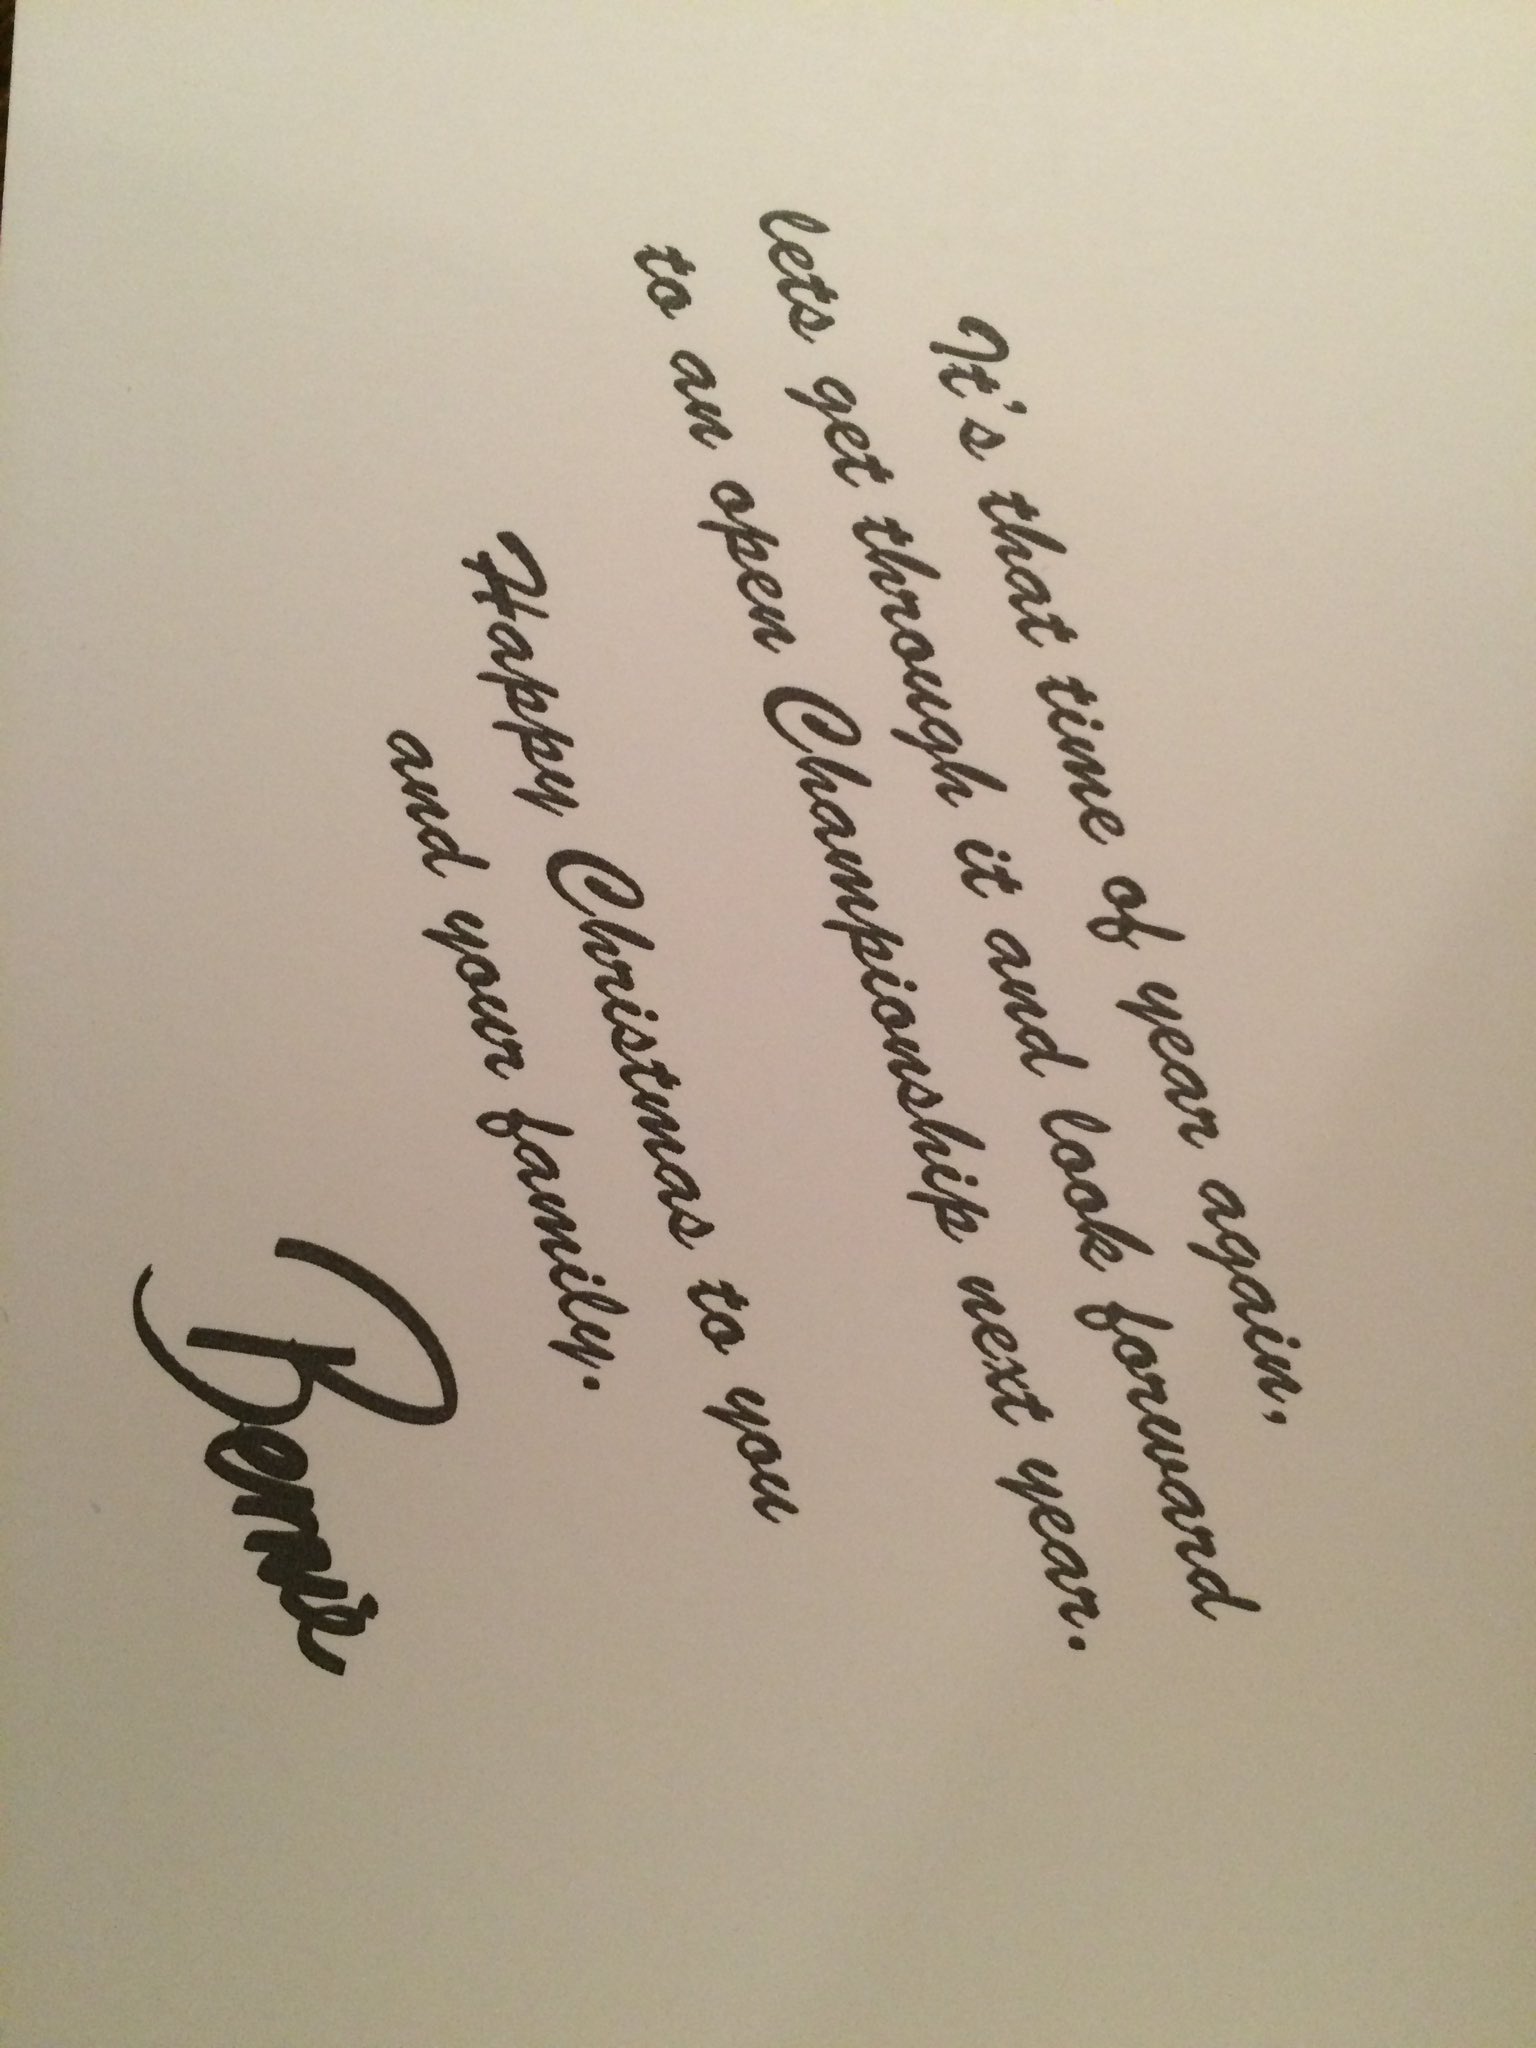 It's that time of year again,
lets get through it and look forward
to an open Championship next year.
Happy Christmas to you
and your family.
Bernie